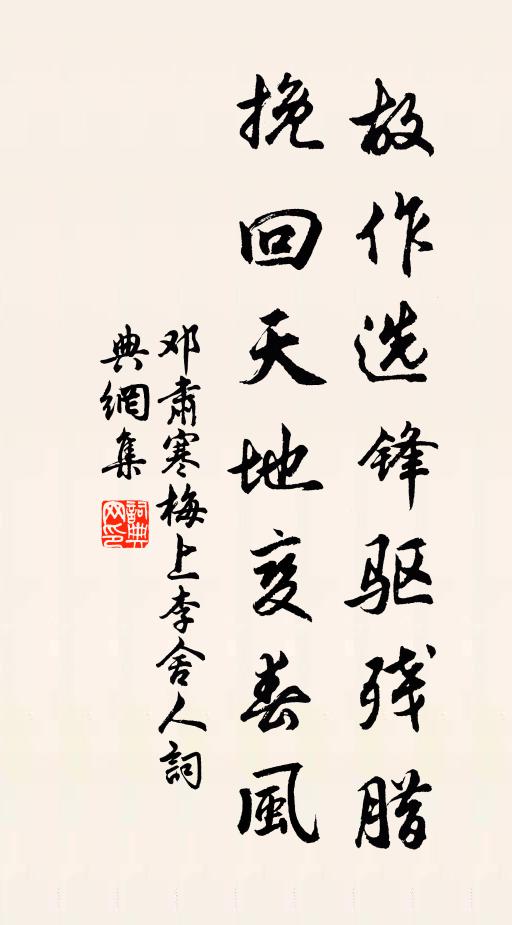 故作选锋驱残腊
挽回天地变春风
邓肃寒梅上李舍人詞
典網集
詞典网印